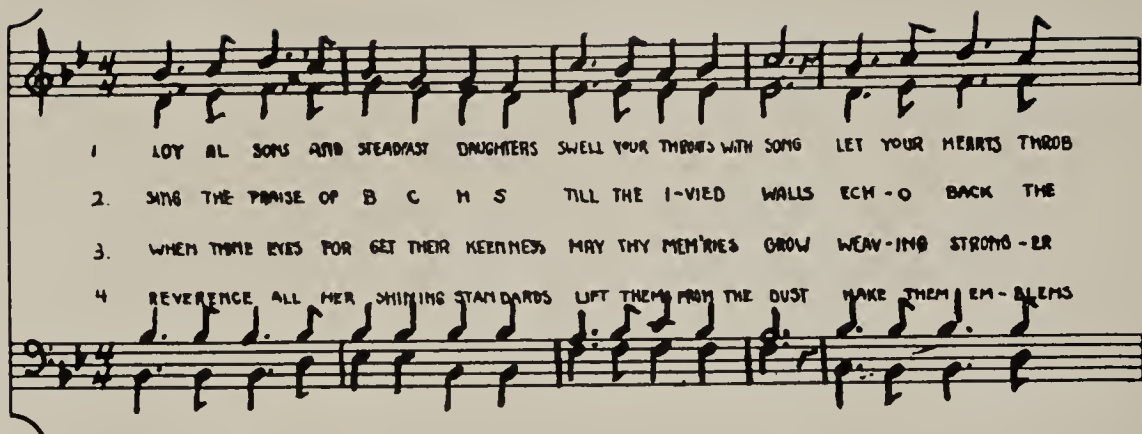 1 LOY AL SONS AND STEADFAST DAUGHTERS SWELL YOUR THROATS WITH SONG LET YOUR HEARTS THROB
2. SING THE PRAISE OF B C H S TILL THE I-VIED WALLS ECH-O BACK THE
3. WHEN THINE EYES FOR GET THEIR KEENNESS MAY THY MEM'RIES GROW WEAV-ING STRONG-ER
4 REVERENCE ALL HER SHINING STANDARDS LIFT THEM FROM THE DUST MAKE THEM EM-BLEMS